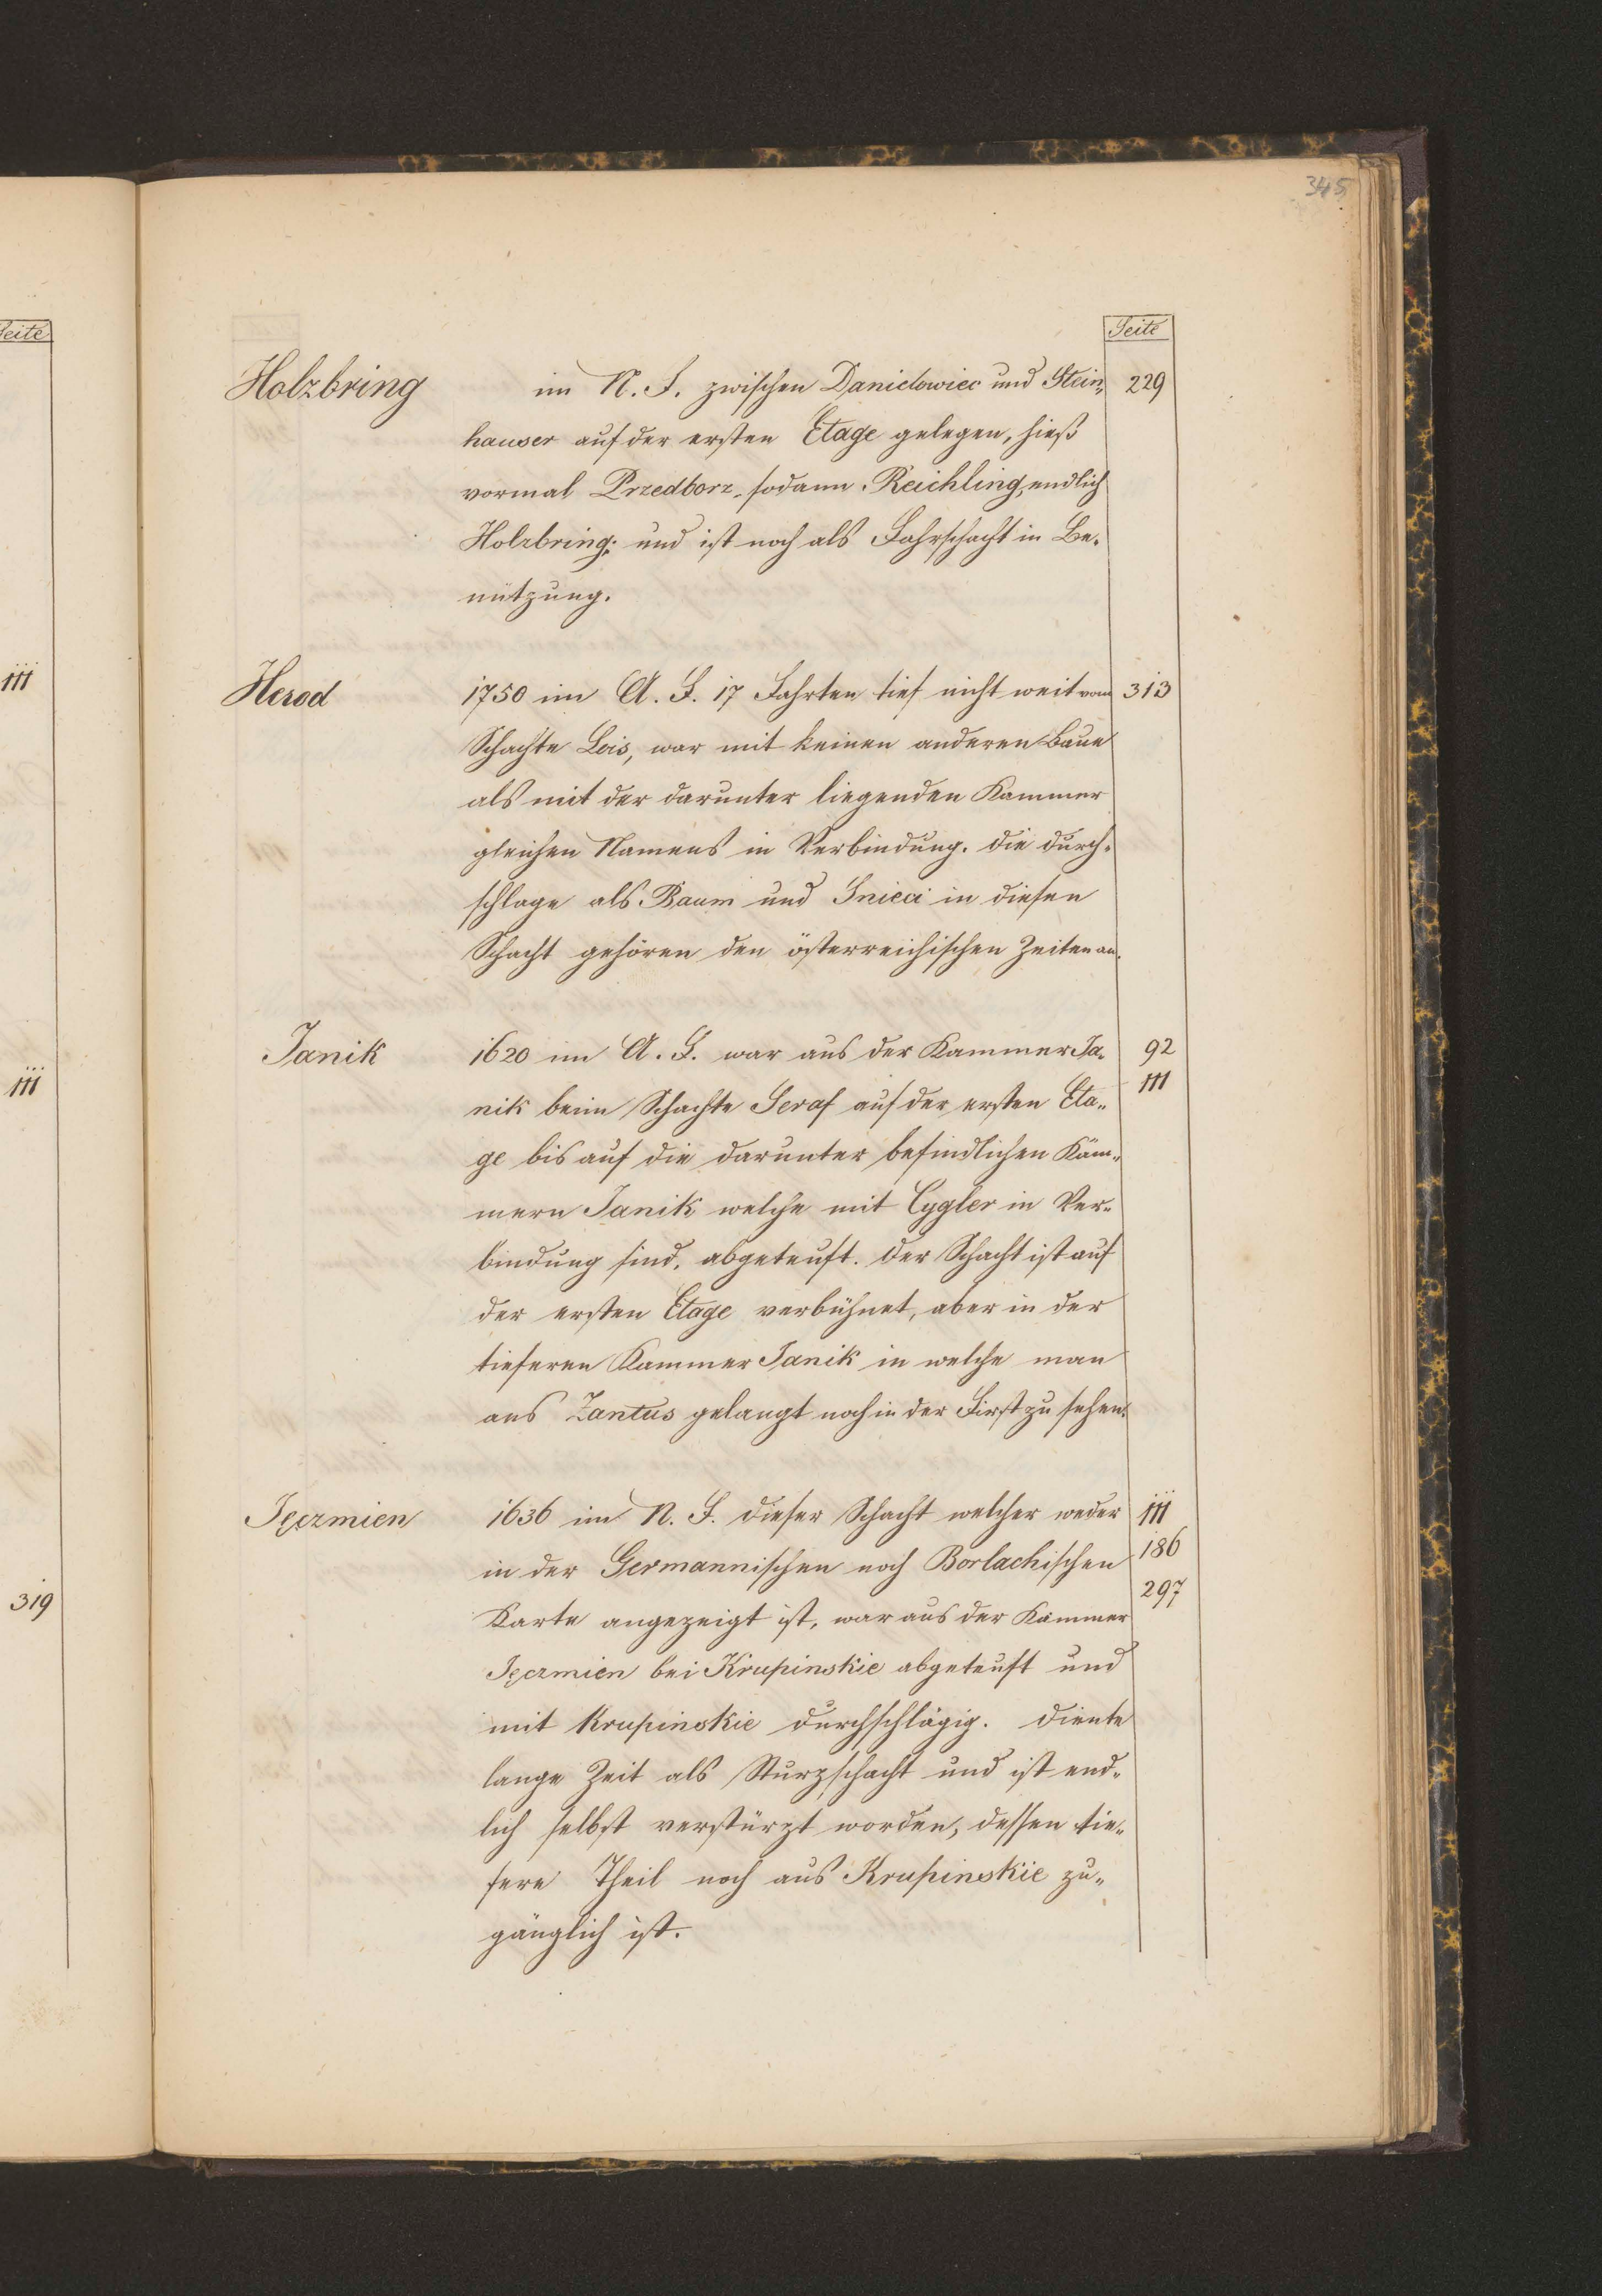 345
Seite
Seite
Holzbring im N. F. zwischen Danielowiec und Stein„ 229
hauser auf der ersten Etage gelegen, hieß
vormal Przedborz, sodann Reichling, endlich
Holzbring; und ist noch als Fahrschacht in Be„
nützung.
111
Herod 1750 im A. F. 17 Fahrten tief nicht weit vom 313
Schachte Lois, war mit keinen anderen Baue
als mit der darunter liegenden Kammer
gleichen Namens in Verbindung. Die durch„
schlage als Baum und Snieci in diesen
Schacht gehören den österreichischen Zeiten an.
Janik 1620 im A. F. war aus der Kammer Ja„ 92
111
nik beim Schachte Seraf auf der ersten Eta„ 111
ge bis auf die darunter befindlichen Kam„
mern Janik welche mit Cygler in Ver„
bindung sind, abgeteuft. Der Schacht ist auf
der ersten Etage verbühnet, aber in der
tieferen Kammer Janik in welche man
aus Zantus gelangt noch in der First zu sehen.
Jęczmien 1636 im N. F. dieser Schacht welcher weder 111
in der Germannischen noch Borlachischen 186
319
Karte angezeigt ist, war aus der Kammer 297
Jęczmien bei Krupinskie abgeteuft und
mit Krupinskie durchschlägig. Diente
lange Zeit als Sturzschacht und ist end„
lich selbst verstürzt worden, dessen tie„
fere Theil noch aus Krupinskie zu„
gänglich ist.